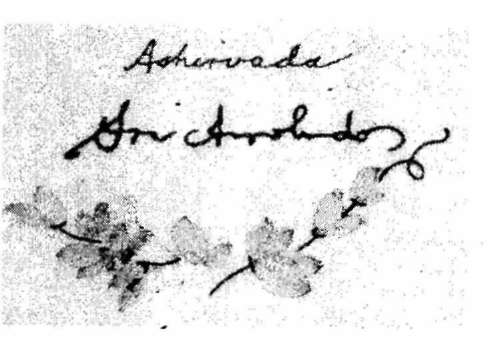 Ashirvada
Sri Aurobindo